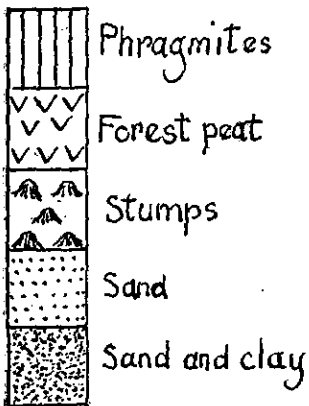 Phragmites
Forest peat
Stumps
Sand
Sand and clay